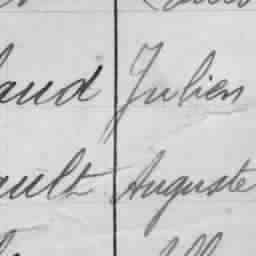 aud Julien
ault Auguste